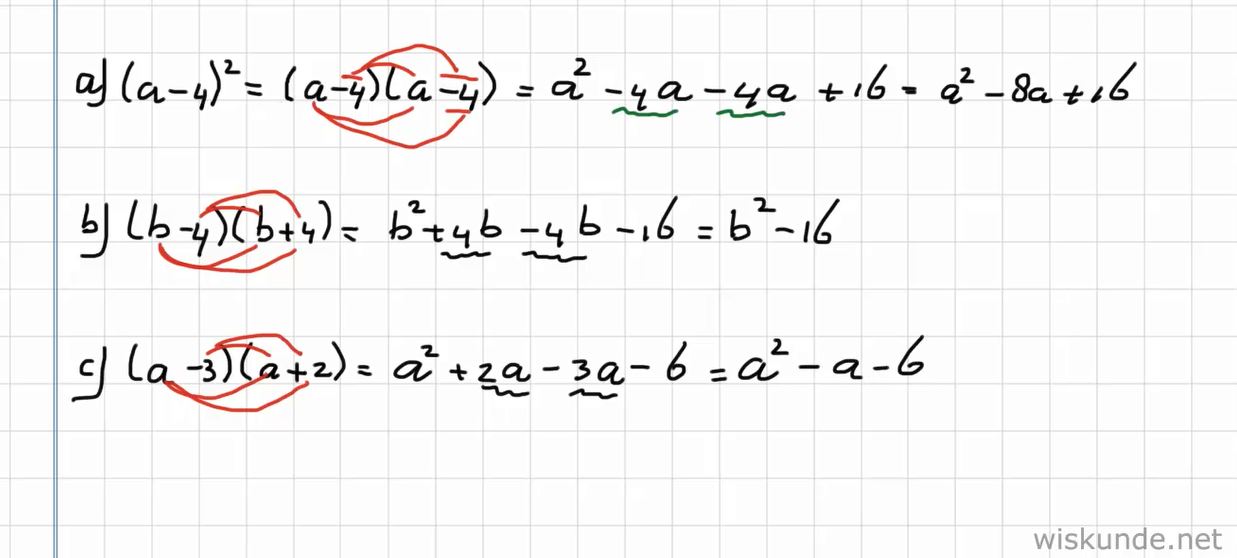 a) (a-4)² = (a-4)(a-4) = a² - 4a - 4a + 16 = a² - 8a + 16
b) (b-4)(b+4) = b² + 4b - 4b - 16 = b² - 16
c) (a-3)(a+2) = a² + 2a - 3a - 6 = a² - a - 6
wiskunde.net